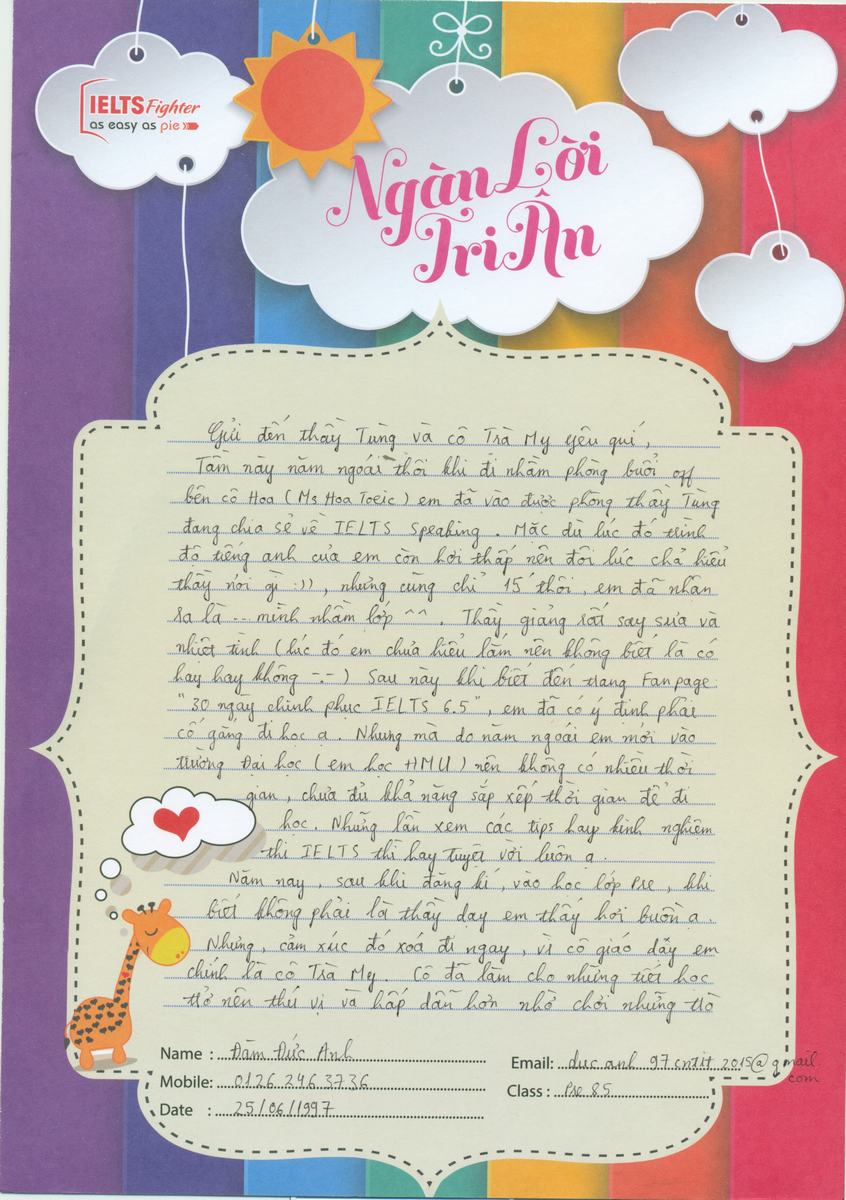 IELTS Fighter
as easy as pie
Ngàn Lời
Tri Ân
Gửi đến thầy Tùng và cô Trà My yêu quí,
Tầm này năm ngoái thôi khi đi nhầm phòng buổi off
bên cô Hoa (Ms Hoa Toeic) em đã vào được phòng thầy Tùng
đang chia sẻ về IELTS Speaking. Mặc dù lúc đó trình
độ tiếng anh của em còn hơi thấp nên đôi lúc chả hiểu
thầy nói gì :)), nhưng cũng chỉ 15' thôi, em đã nhận
ra là ... mình nhầm lớp ^^. Thầy giảng rất say sưa và
nhiệt tình (lúc đó em chưa hiểu lắm nên không biết là có
hay hay không -.-) Sau này khi biết đến trang Fanpage
"30 ngày chinh phục IELTS 6.5", em đã có ý định phải
cố gắng đi học ạ. Nhưng mà do năm ngoái em mới vào
trường Đại học (em học HMU) nên không có nhiều thời
gian, chưa đủ khả năng sắp xếp thời gian để đi
học. Những lần xem các tips hay kinh nghiệm
thi IELTS thì hay tuyệt vời luôn ạ.
Năm nay, sau khi đăng kí, vào học lớp Pre, khi
biết không phải là thầy dạy em thấy hơi buồn ạ.
Nhưng, cảm xúc đó xoá đi ngay, vì cô giáo dạy em
chính là cô Trà My. Cô đã làm cho những tiết học
trở nên thú vị và hấp dẫn hơn nhờ chơi những trò
Name : Đàm Đức Anh
Email: duc anh 97 cntit 2015@gmail.
com
Mobile: 0126 246 3736
Class : Pre 85
Date : 25/06/1997